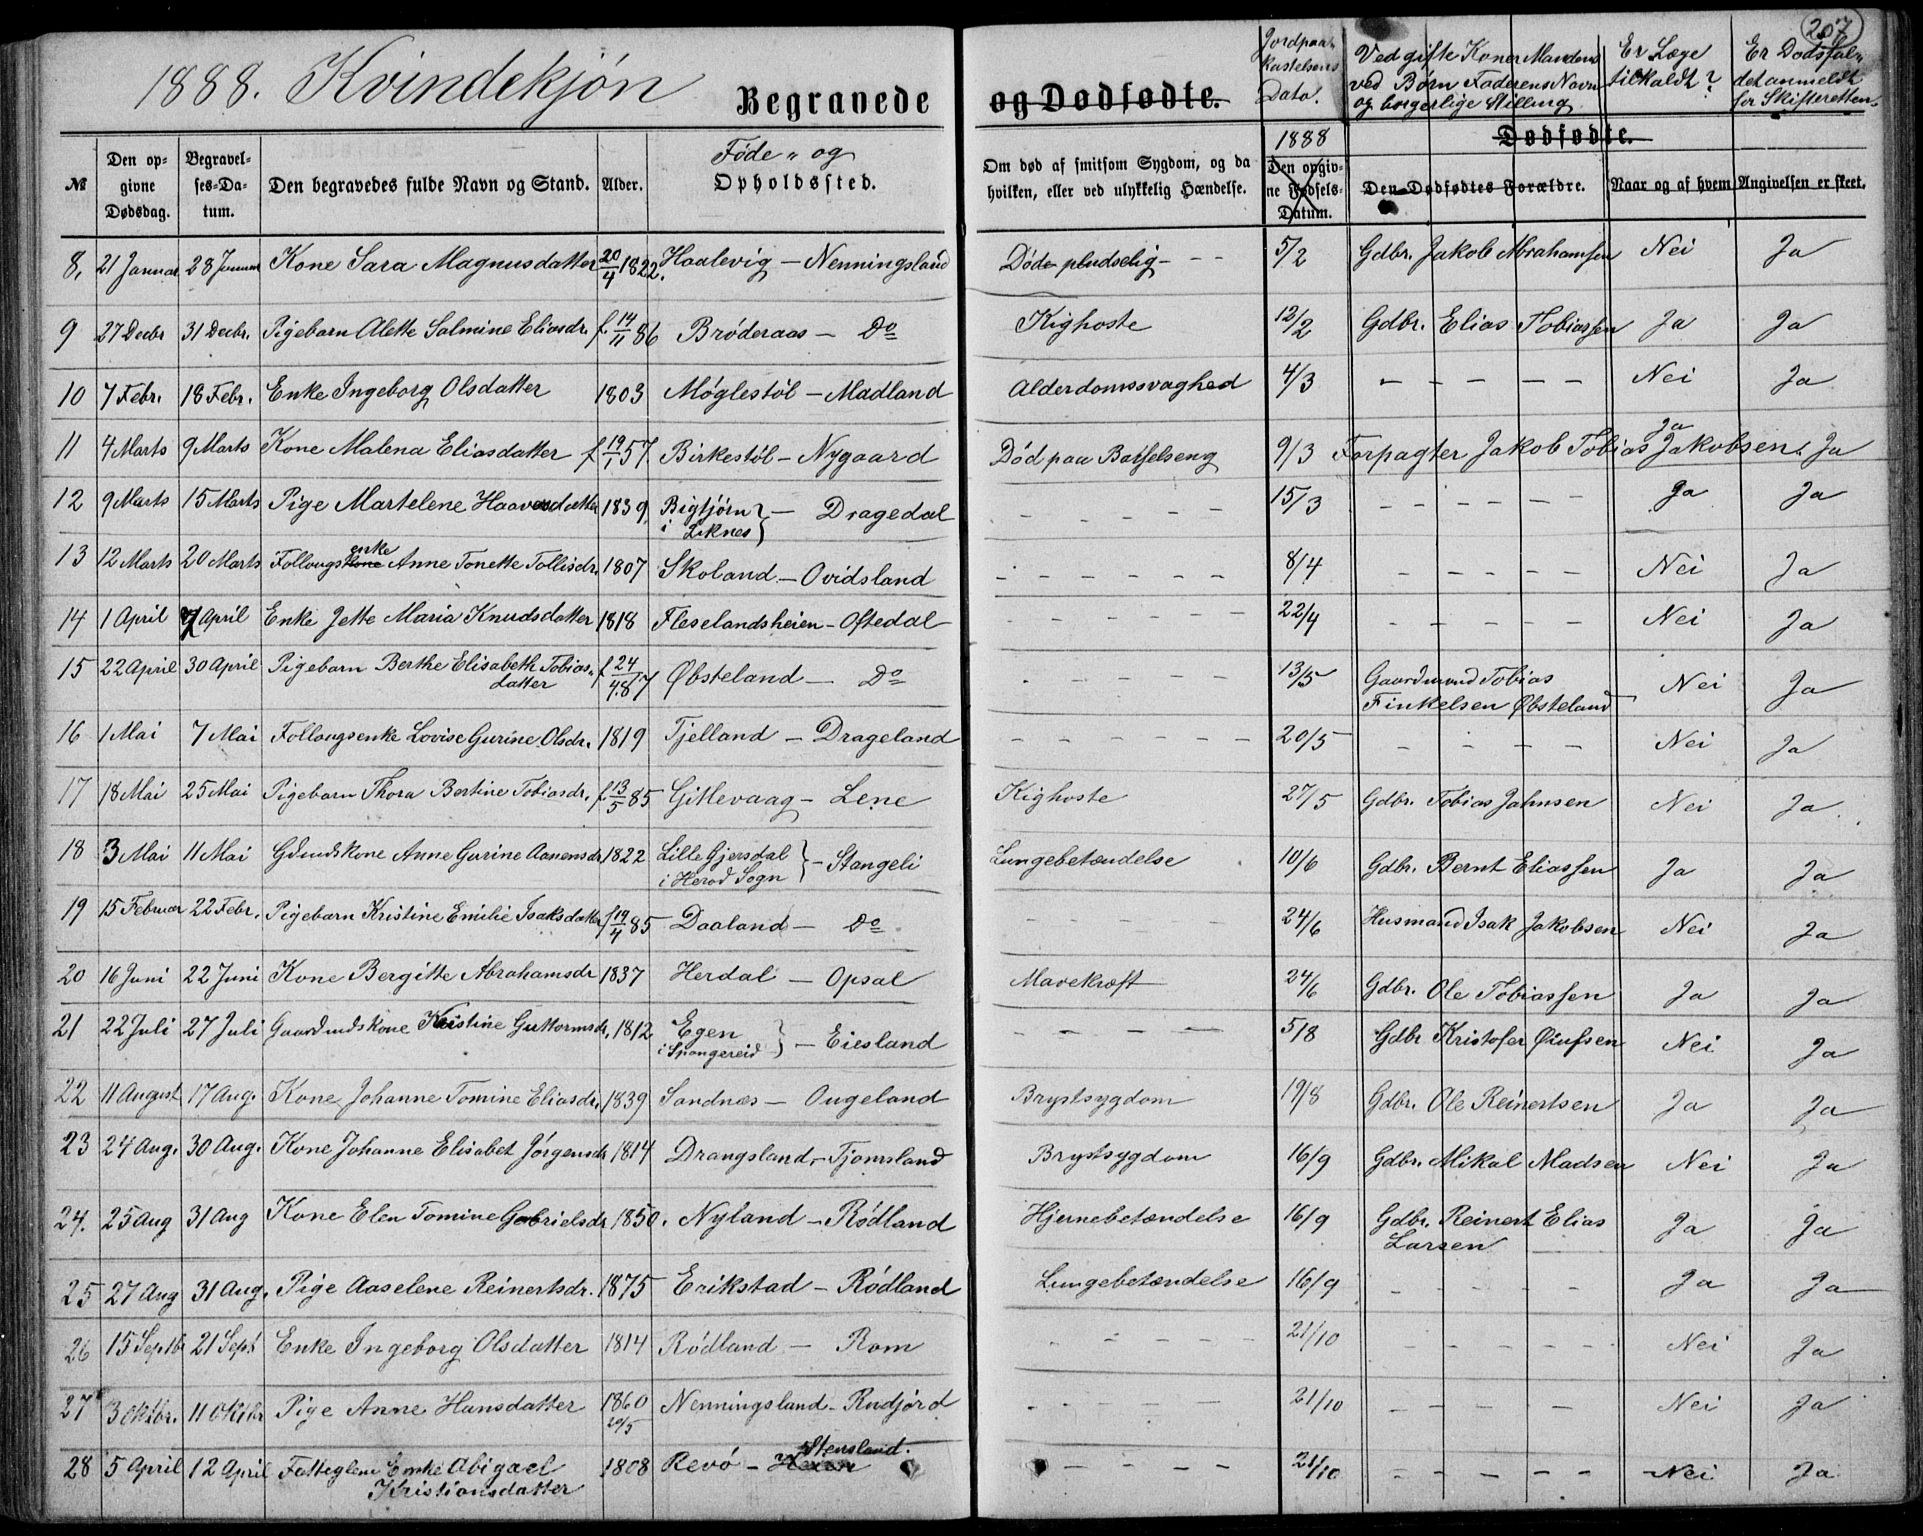 207
1888. Kvindekjøn Begravede og Dødfødte.
Jordpaakastelsens Dato. 1888
Ved gifte Koner Mandens ved Børn Faderens Navn og borgerlige Stilling
Er Læge tilkaldt?
Er Dødsfaldet anmeldt for Skifteretten.
Dødfødte.
№ Den opgivne Dødsdag. Begravelses-Datum. Den begravedes fulde Navn og Stand. Alder. Føde- og Opholdssted. Om død af smitsom Sygdom, og da hvilken, eller ved ulykkelig Hændelse. Den opgivne Fødsels-Datum. Den Dødfødtes Forældre. Naar og af hvem Angivelsen er skeet.
8, 21 Januar 28 Januar Kone Sara Magnusdatter 20/4 1822. Haalevig – Nenningsland Døde pludselig – – 5/2 Gdbr. Jakob Abrahamsen Nei Ja
9 27 Decbr 31 Decbr. Pigebarn Alette Salmine Eliasdr. f. 14/11 86 Brøderaas – Do Kighoste 12/2 Gdbr. Elias Tobiassen Ja Ja
10 7 Febr. 18 Febr. Enke Ingeborg Olsdatter 1803 Møglestøl – Madland Alderdomssvaghed 4/3 – – – – – Nei Ja
11 4 Marts 9 Marts Kone Malena Eliasdatter f 19/1 57. Birkestøl – Nygaard Død paa Barselseng 9/3 Forpagter Jakob Tobias Jakobsen. Ja Ja
12 9 Marts 15 Marts Pige Martelene Haavesdatter 1839, Bigtjørn i Liknes } – Dragedal – – – – – 15/3 – – – – – Ja Ja
13 12 Marts 20 Marts Follougskone enke Anne Tonette Tollisdr. 1807 Skoland – Ovidsland – – – – – – 8/4 – – – – – Nei Ja
14 1 April 7 April Enke Jette Maria Knudsdatter 1818 Fleselandsheien – Oftedal – – – – – 22/4 – – – – – Nei Ja
15 22 April 30 April Pigebarn Berthe Elisabeth Tobiasdatter f 24/4 87 Øbsteland – Do – – – – – 13/5 Gaardmand Tobias Finkelsen Øbsteland Nei Ja
16 1 Mai 7 Mai Follougsenke Lovise Gurine Olsdr. 1819 Tjelland – Drageland – – – – – – 20/5 – – – – Nei Ja
17 18 Mai 25 Mai Pigebarn Thora Bertine Tobiasdr. f. 13/5 85 Gitlevaag – Lene Kighoste 27/5 Gdbr. Tobias Jahnsen Nei Ja
18 3 Mai 11 Mai Gdmdskone Anne Gurine Aanensdr 1822 Lille Gjersdal i Herod Sogn } – Stangeli Lungebetændelse 10/6 Gdbr. Bernt Eliassen Ja Ja
19 15 Februar 22 Febr. Pigebarn Kristine Emilie Isaksdatter f 19/4 85 Daaland – Do – – – – – 24/6 Husmand Isak Jakobsen Nei Ja
20 16 Juni 22 Juni Kone Bergitte Abrahamsdr 1837 Herdal – Opsal Mavekræft 24/6 Gdbr. Ole Tobiassen Ja Ja
21 22 Juli 27 Juli Gaardmdskone Kristine Guttormsdr. 1812 Egen i Spangereid } – Eiesland – – – – – 5/8 Gdbr Kristofer Nei Ja
22 11 August 17 Aug. Kone Johanne Tomine Eliasdr. 1839 Sandnæs – Ougeland Brystsygdom 19/8 Gdbr. Ole Reinertsen Ja Ja
23 24 Aug. 30 Aug. Kone Johanne Elisabet Jørgensdr 1814 Drangsland – Tjomsland Brystsygdom 16/9 Gdbr. Mikal Madsen Nei Ja
24. 25 Aug 31 Aug Kone Elen Tomine Gabrielsdr 1850. Nyland – Rødland Hjernebetændelse 16/9 Gdbr. Reinert Elias Larsen Ja Ja
25 27 Aug 31 Aug. Pige Aaselene Reinertsdr. 1875 Erikstad – Rødland Lungebetændelse 16/9 – – – – – Ja Ja
26 15 Septbr 21 Sept Enke Ingeborg Olsdatter 1814 Rødland – Rom – – – – – 21/10 – – – – – Nei Ja
27 3 Oktbr. 11 Oktbr Pige Anne Hansdatter 1860 20/5 Nenningsland – Rudjord – – – – – 21/10 – – – – – Nei Ja
28 5 April 12 April Fatteglem Enke Abigael Kristiansdatter 1808 Revø – Stensland. – – – – 21/10 – – – – – Nei Ja